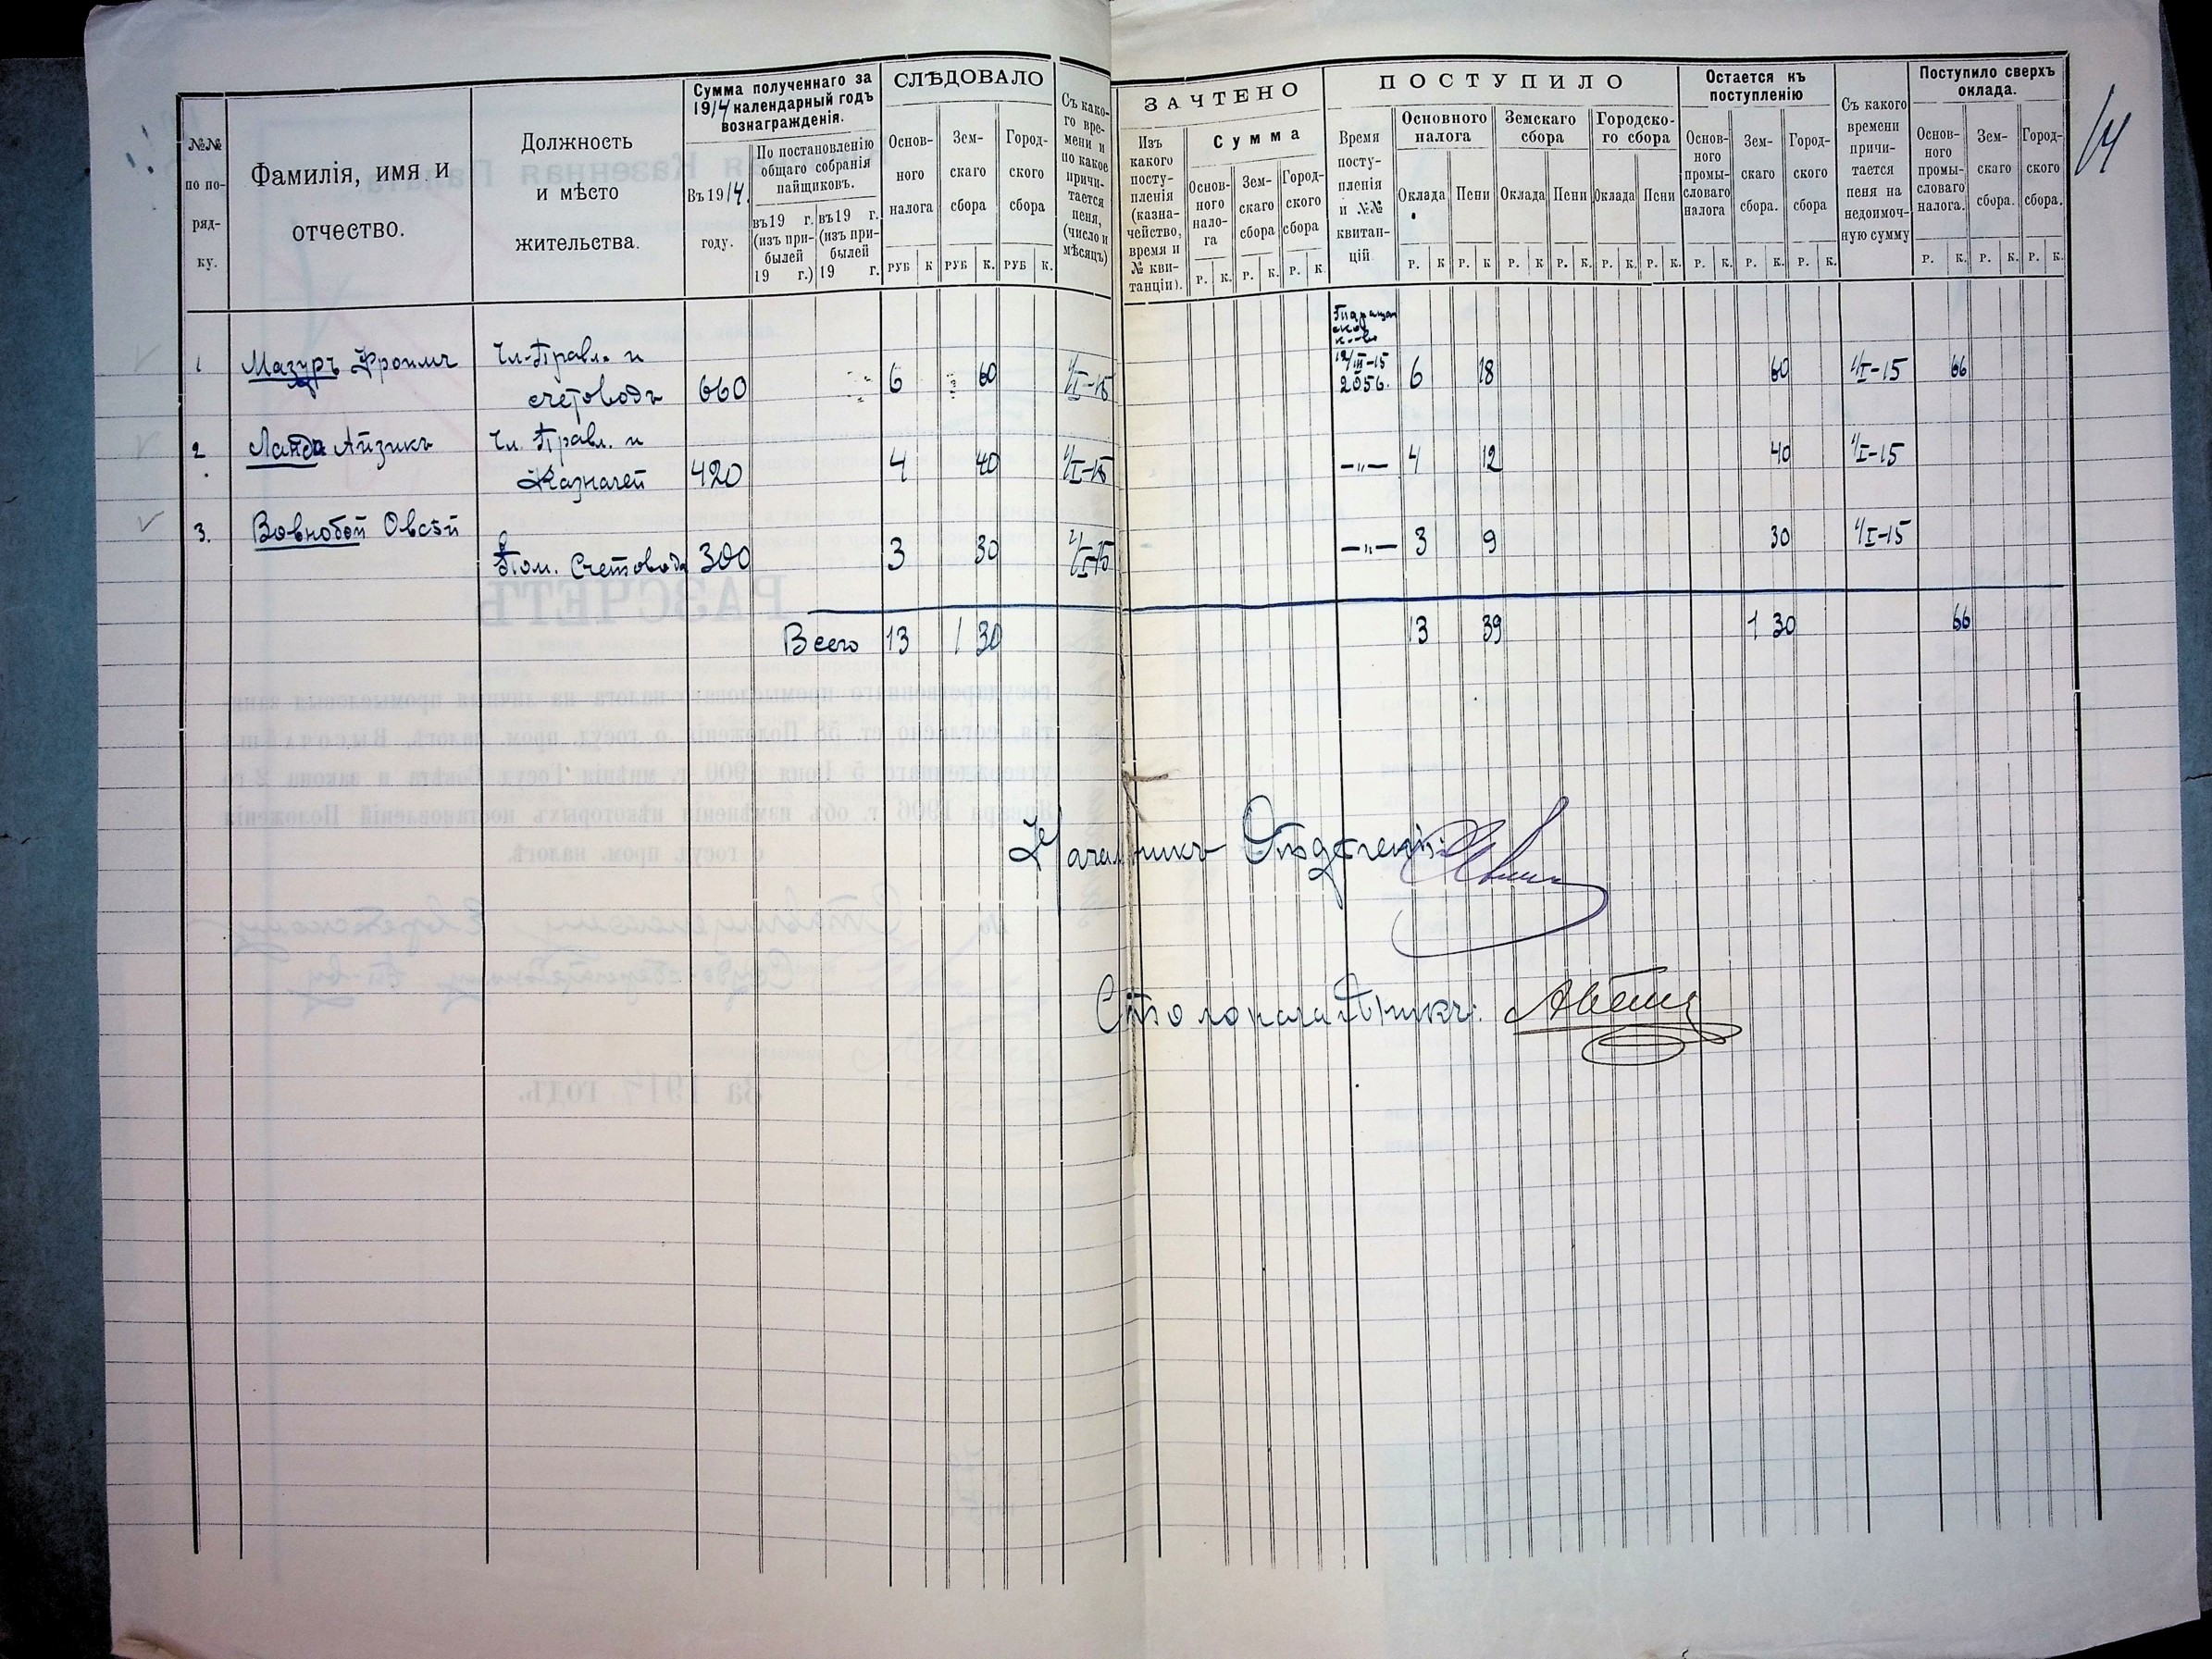 №№ по по- ряд- ку.
Фамилія, имя и отчество.
Должность и мѣсто жительства.
Сумма полученнаго за 1914 календарный годъ вознагражденія.
Въ 1914. году.
По постановленію общаго собранія пайщиковъ.
въ19 г. (изъ при- былей 19 г.)
въ19 г. (изъ при- былей 19 г.
СЛѢДОВАЛО
Основ- ного налога
Зем- скаго сбора
Город- ского сбора
РУБ К РУБ К. РУБ К.
Съ како- го вре- мени и по какое причи- тается пеня, (число и мѣсяцъ)
ЗАЧТЕНО
Изъ какого посту- пленія (казна- чейство, время и № кви- танціи).
Сумма
Основ- ного нало- га
Зем- скаго сбора
Город- ского сбора
Р. К. Р. К. Р. К.
ПОСТУПИЛО
Время посту- пленія и №№ квитан- цій
Основного налога
Земскаго сбора
Городско- го сбора
Оклада Пени Оклада Пени Оклада Пени
Р. К Р. К Р. К Р. К. Р. К. Р. К.
Остается къ поступленію
Основ- ного промы- словаго налога
Зем- скаго сбора.
Город- ского сбора
Р. К. Р. К. Р. К.
Съ какого времени причи- тается пеня на недоимоч- ную сумму
Поступило сверхъ оклада.
Основ- ного промы- словаго налога.
Зем- скаго сбора.
Город- ского сбора.
Р. К. Р. К. Р. К.
1 Мазуръ Фроимъ Чл. Правл. и счетоводъ 660 6 60 1/I-15 12/III-15 2056. 6 18 60 1/I-15 66
2 Ланда Айзикъ Чл. Правл. и Казначей 420 4 40 1/I-15 —"— 4 12 40 1/I-15
3. Вовнобой Овсѣй Пом. Счетовода 300 3 30 1/I-15 —"— 3 9 30 1/I-15
Всего 13 1 30 13 39 1 30 66
Начальникъ Отдѣленія:
Столоначальникъ: